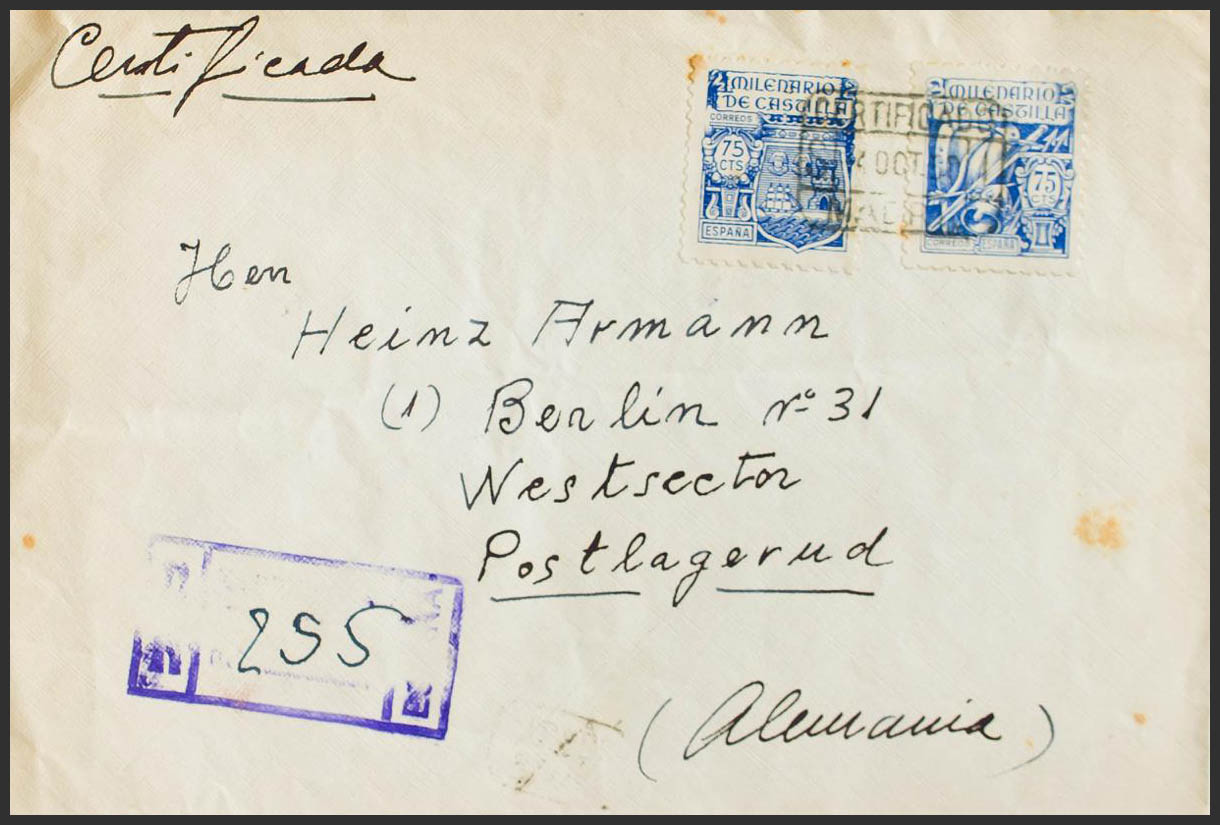 Certificada
MILENARIO
DE CASTILLA
CORREOS
75
CTS
ESPAÑA
MILENARIO
DE CASTILLA
75
CTS
CORREOS ESPAÑA
CERTIFICADO
OCT
Herr
Heinz Armann
(1) Berlin nº 31
Westsector
Postlagerud
255
(Alemania)